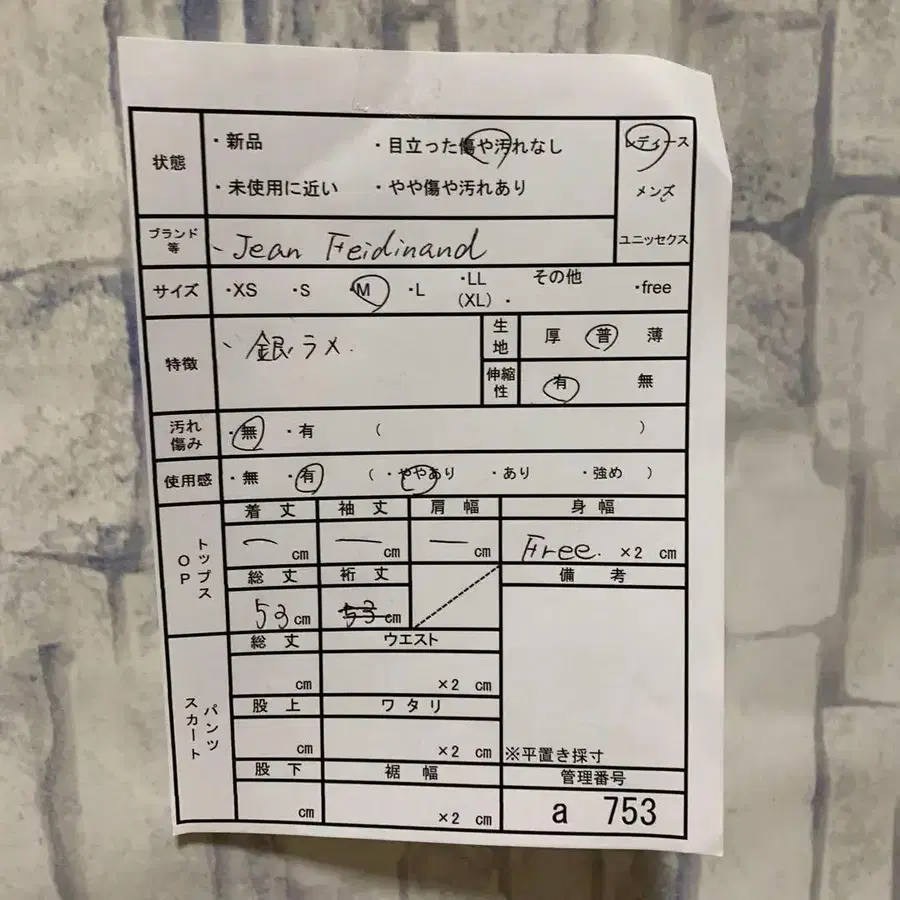 状態
・新品 ・目立った傷や汚れなし
・未使用に近い ・やや傷や汚れあり
レディース
メンズ
ユニッセクス
ブランド等
、Jean Feidinand
サイズ
・XS ・S ・M ・L ・LL (XL) ・ その他 ・free
特徴
、銀ラメ.
生地
厚 普 薄
伸縮性
有 無
汚れ傷み
・無 ・有 ( )
使用感
・無 ・有 ( ・ややあり ・あり ・強め )
トップス OP
着丈 袖丈 肩幅 身幅
— cm — cm — cm Free. ×2 cm
総丈 裄丈 備考
53cm 53cm
パンツ スカート
総丈 ウエスト
cm ×2 cm
股上 ワタリ
cm ×2 cm
※平置き採寸
股下 裾幅 管理番号
cm ×2 cm a 753